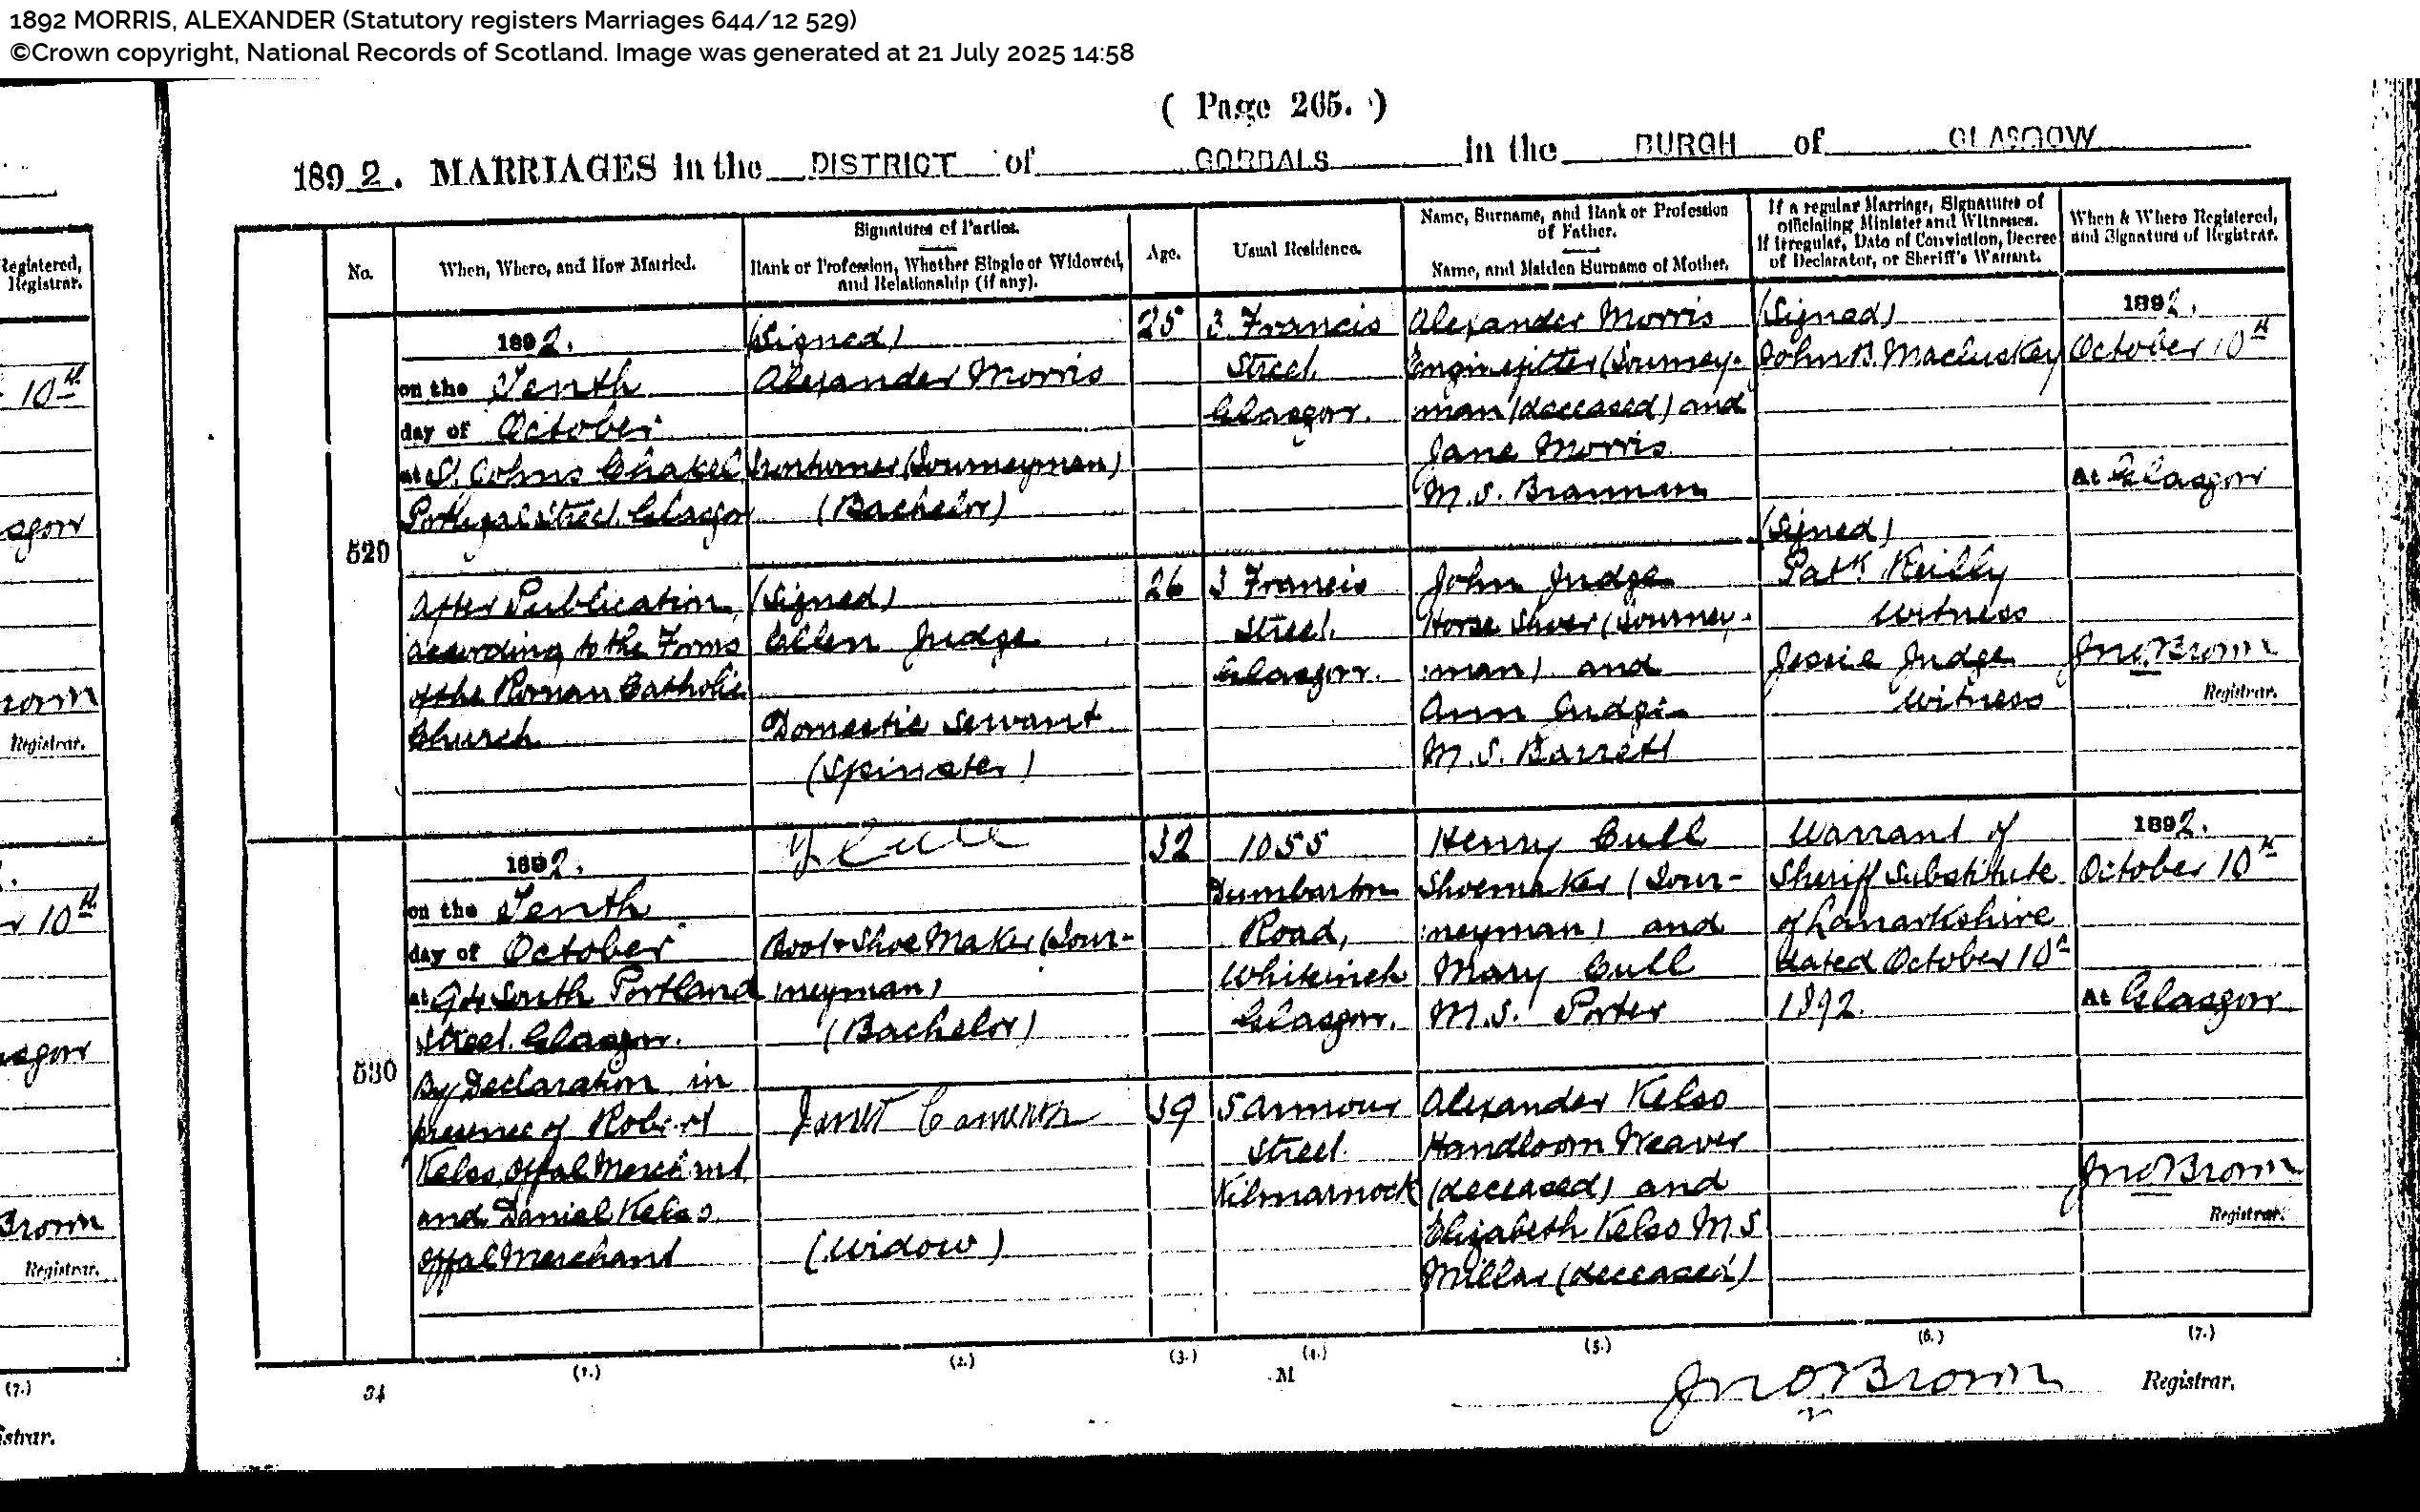 1892 MORRIS, ALEXANDER (Statutory registers Marriages 644/12 529)
©Crown copyright, National Records of Scotland. Image was generated at 21 July 2025 14:58
( Page 265. )
1892. MARRIAGES in the DISTRICT of GORBALS in the BURGH of GLASGOW
Registered,
Registrar.
10th
Registrar.
10th
Brown
Registrar.
(7.)
No.
When, Where, and How Married.
Signatures of Parties.
Rank or Profession, Whether Single or Widowed,
and Relationship (if any).
Age.
Usual Residence.
Name, Surname, and Rank or Profession
of Father.
Name, and Maiden Surname of Mother.
If a regular Marriage, Signatures of
officiating Minister and Witnesses.
If irregular, Date of Conviction, Decree
of Declarator, or Sheriff's Warrant.
When & Where Registered,
and Signature of Registrar.
529
1892.
on the Tenth
day of October
at St. Johns Chapel
Portugal Street. Glasgow
After Publication,
according to the Forms
of the Roman Catholic
Church
(Signed)
Alexander Morris
Ironturner (Journeyman)
(Bachelor)
(Signed)
Ellen Judge
Domestic Servant
(Spinster)
25
26
3 Francis
Street.
Glasgow.
3 Francis
Street.
Glasgow.
Alexander Morris
Enginefitter (Journey-
man) (deceased) and
Jane Morris
M.S. Brannan
John Judge
Horse Shoer (Journey-
:man) and
Ann Judge
M.S. Barrett
(Signed)
John B. Macluskey
(Signed)
Patk. Reilly
Witness
Jessie Judge
Witness
1892.
October 10th
At Glasgow
Jno. Brown
Registrar.
530
1892.
on the Tenth
day of October
at South Portland
Street. Glasgow.
By Declaration in
presence of Robert
Kelso, Offal Merchant,
and Daniel Kelso
Offal Merchant
Cull
Boot & Shoe Maker (Jour-
:neyman)
(Bachelor)
Janet Cameron
(Widow)
32
39
1055
Dumbarton
Road,
Whiteinch
Glasgow.
5 Armour
Street.
Kilmarnock
Henry Cull
Shoemaker (Jour-
:neyman) and
Mary Cull
M.S. Porter
Alexander Kelso
Handloom Weaver
(deceased) and
Elizabeth Kelso M.S.
Millar (deceased)
Warrant of
Sheriff Substitute
of Lanarkshire
dated October 10th
1892.
1892.
October 10th
At Glasgow
Jno. Brown
Registrar.
(1.) (2.) (3.) (4.) (5.) (6.) (7.)
34
M
Jno. Brown Registrar.